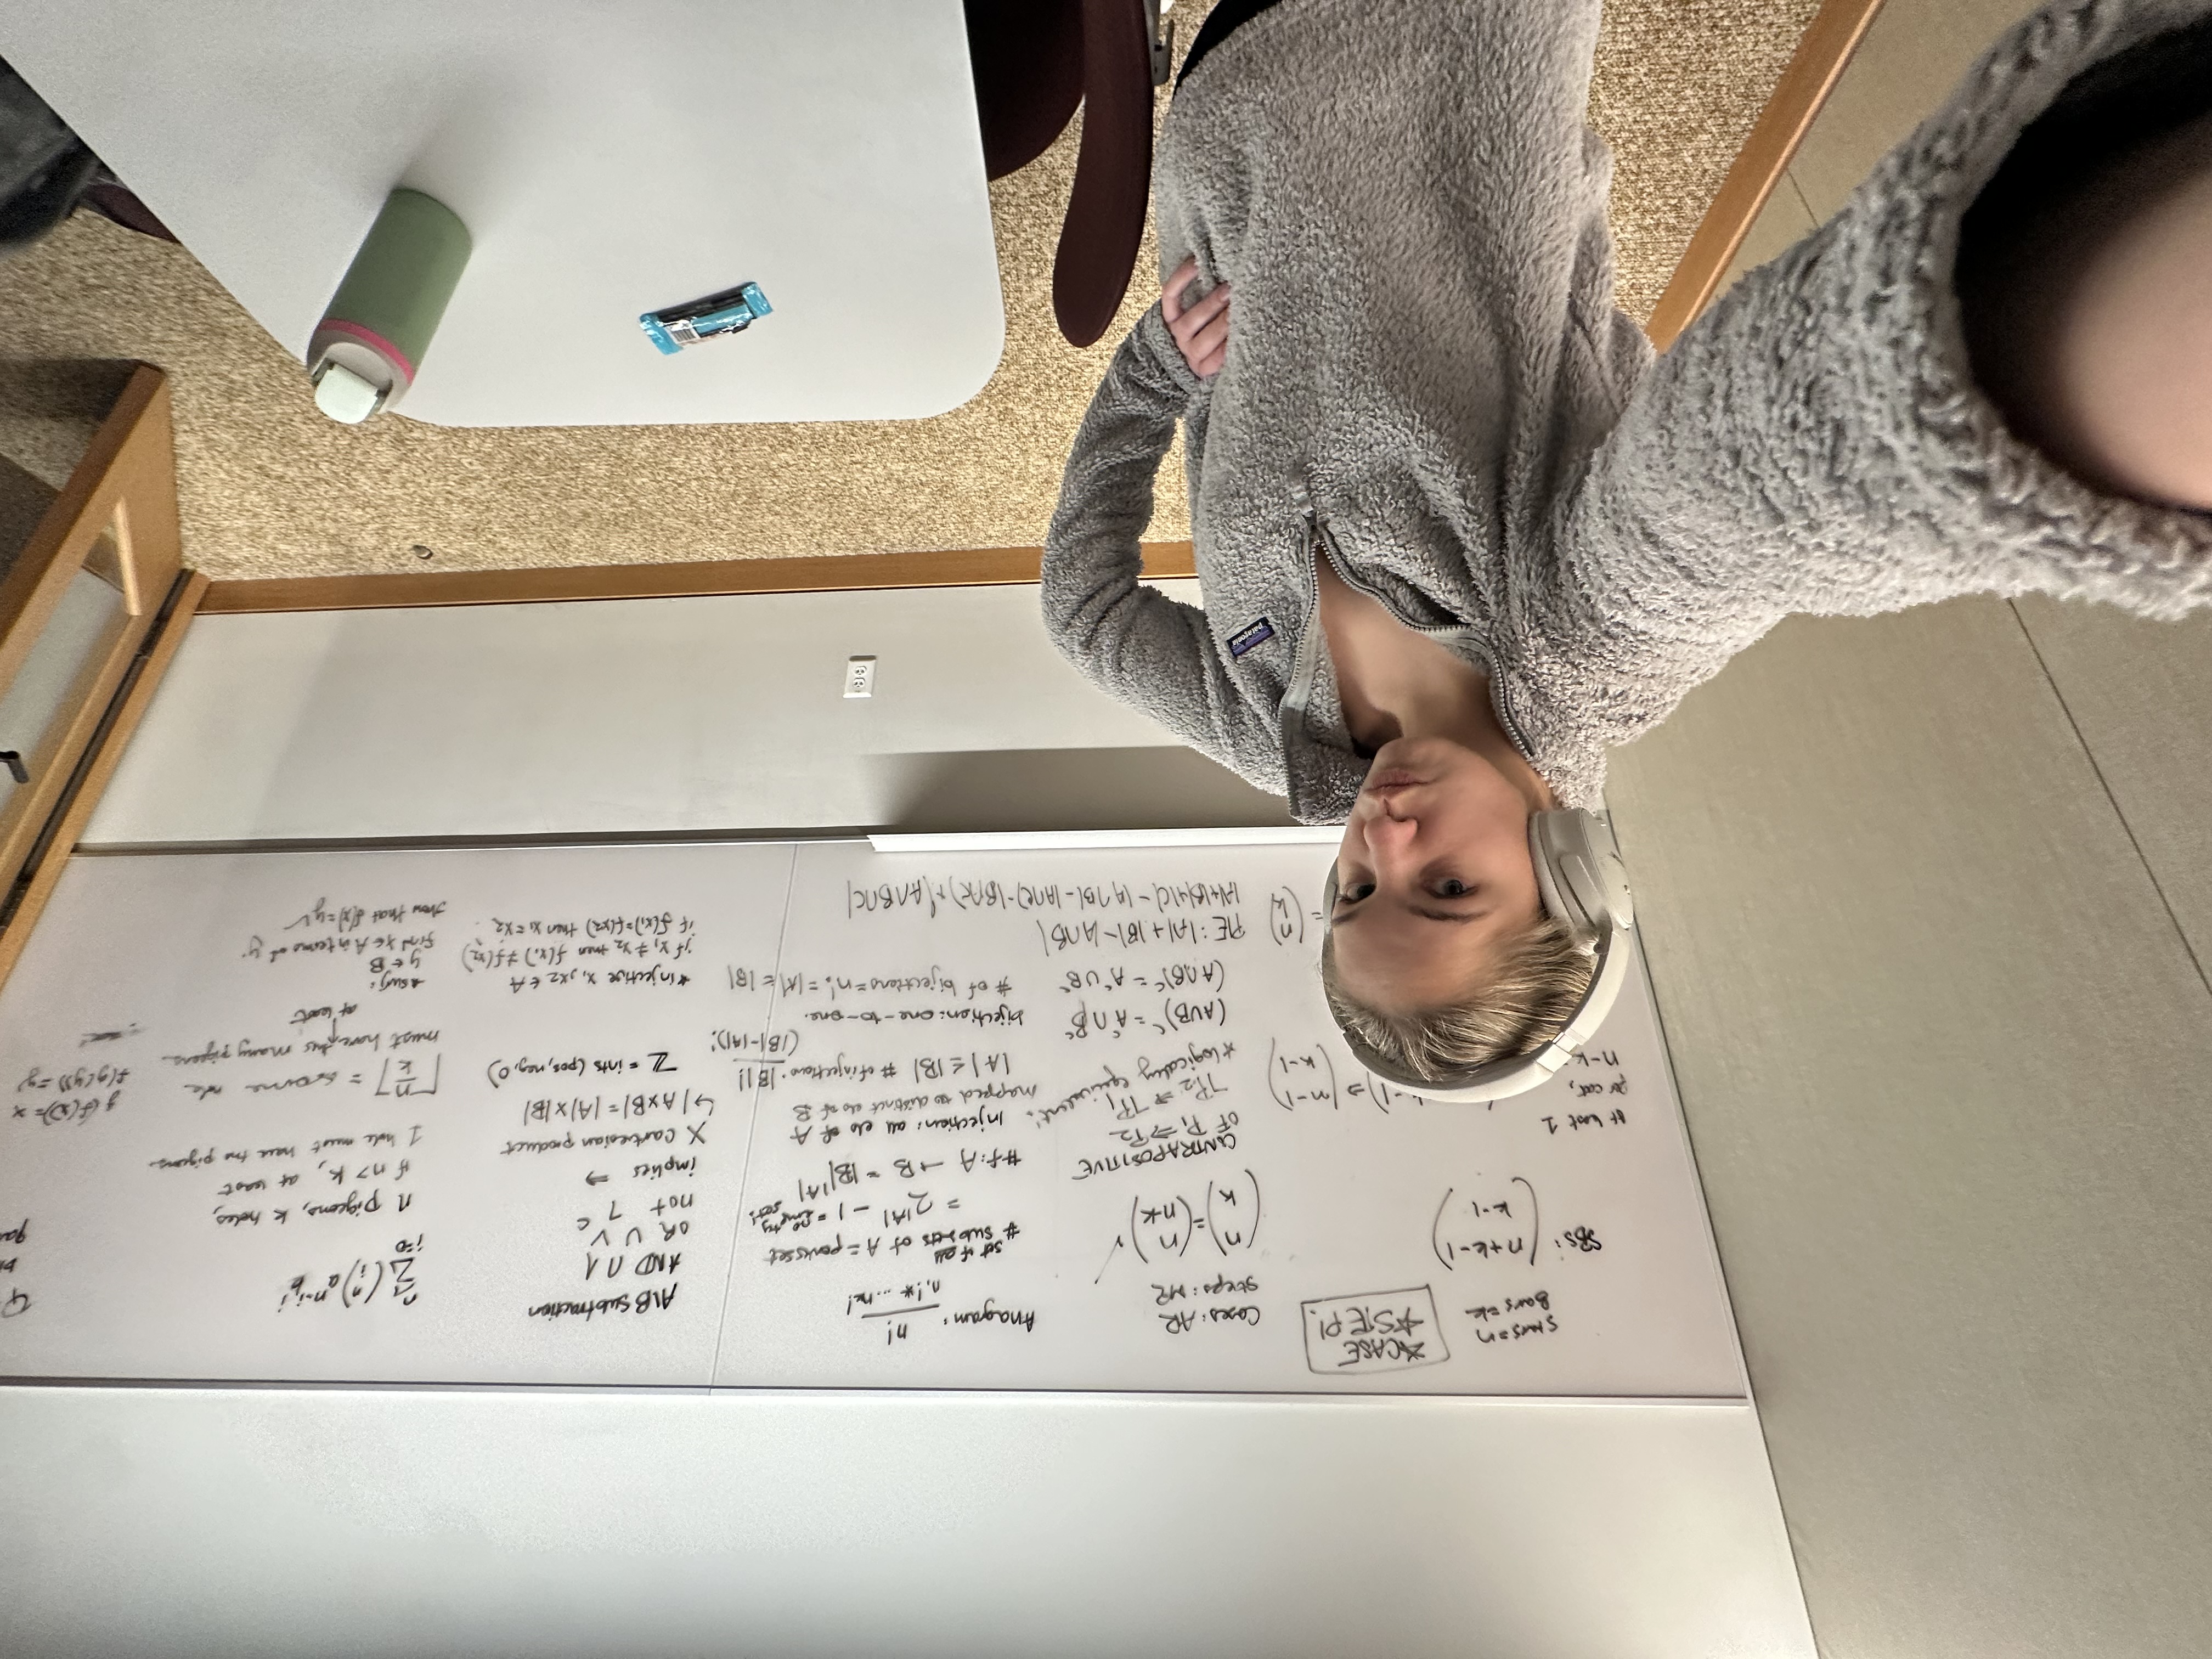 Stars = n
Bars = k
*CASE
*STEP!
SBS: (n+k-1
k-1)
At least 1
per cat,
n-k
-1) ⇒ (n-1
k-1)
= (n
k)
Cases: AR
Steps: MR
(n
k) = (n
n-k) ✓
CONTRAPOSITIVE
OF P₁ ⇒ P₂
¬P₂ ⇒ ¬P₁
*logically equivalent!
(A∪B)ᶜ = Aᶜ ∩ Bᶜ
(A∩B)ᶜ = Aᶜ ∪ Bᶜ
PIE: |A| + |B| - |A∩B|
|A|+|B|+|C| - |A∩B| - |A∩C| - |B∩C| + |A∩B∩C|
Anagram: n!
n₁! * ... nₖ!
set of all
# subsets of A = powerset
= 2^|A| - 1 = no empty set!
# f: A → B = |B|^|A|
Injection: all els of A
mapped to distinct els of B
|A| ≤ |B| # of injections: |B|!
(|B|-|A|)!
bijection: one-to-one.
# of bijections = n! = |A| = |B|
A\B subtraction
AND ∩ ∧
OR ∪ ∨
not ¬ ᶜ
implies ⇒
X Cartesian product
↳ |A×B| = |A|×|B|
ℤ = ints (pos, neg, 0)
*injective x₁, x₂ ∈ A
if x₁ ≠ x₂ then f(x₁) ≠ f(x₂)
if f(x₁) = f(x₂) then x₁ = x₂
n
Σ (n
i) a^n-i b^i
i=0
n pigeons, k holes,
if n > k, at least
1 hole must have two pigeons
⌈n/k⌉ = some hole
must have this many pigeons
at least
*surj:
y ∈ B
find x ∈ A in terms of y.
show that f(x) = y ✓
g(f(x)) = x
f(g(y)) = y
patagonia